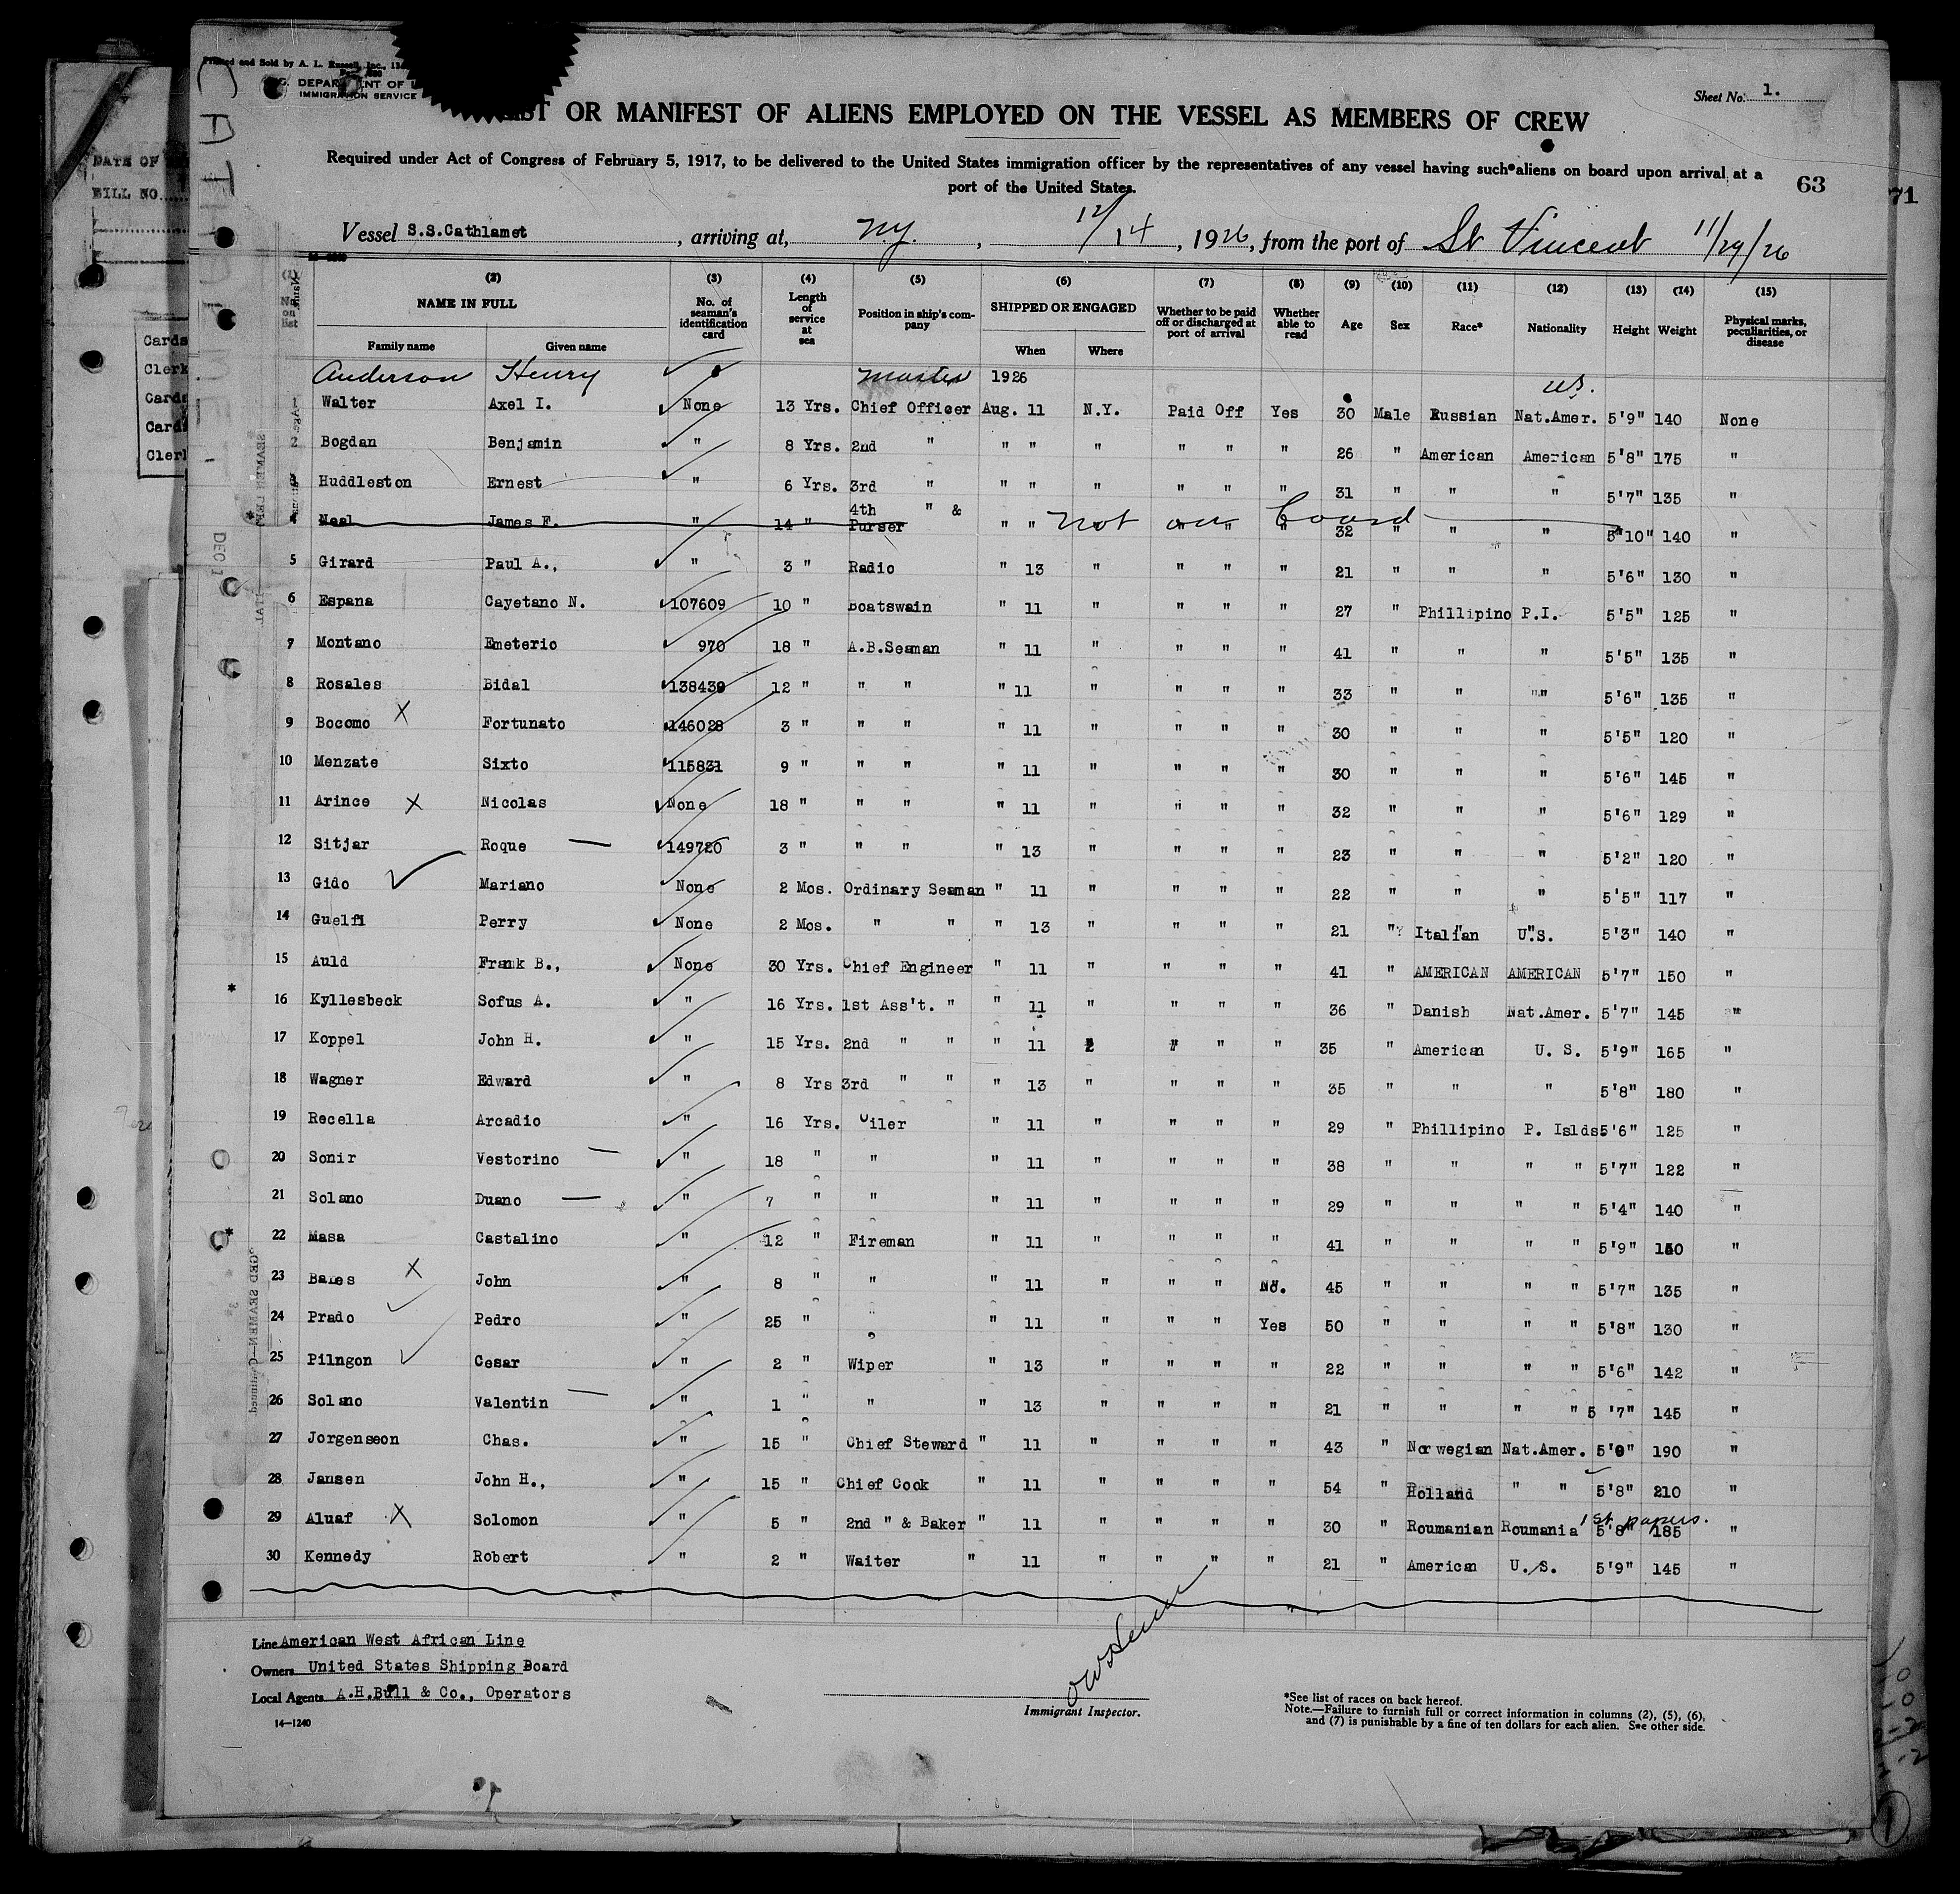 Printed and Sold by A. L. Russell, Inc.,
DEPARTMENT OF
IMMIGRATION SERVICE
Sheet No. 1.
OR MANIFEST OF ALIENS EMPLOYED ON THE VESSEL AS MEMBERS OF CREW
Required under Act of Congress of February 5, 1917, to be delivered to the United States immigration officer by the representatives of any vessel having such aliens on board upon arrival at a
port of the United States.
63
71
DATE OF
BILL NO.
Cards
Clerk
Cards
Card
Clerk
Vessel S.S.Cathlamet, arriving at, N.Y., 12/14, 1926, from the port of St Vincent 11/29/26
(2) (3) (4) (5) (6) (7) (8) (9) (10) (11) (12) (13) (14) (15)
No. on list NAME IN FULL Family name Given name No. of seaman's identification card Length of service at sea Position in ship's company SHIPPED OR ENGAGED When Where Whether to be paid off or discharged at port of arrival Whether able to read Age Sex Race* Nationality Height Weight Physical marks, peculiarities, or disease
Anderson Henry Master 1926 U.S.
1 Walter Axel I. None 13 Yrs. Chief Officer Aug. 11 N.Y. Paid Off Yes 30 Male Russian Nat.Amer. 5'9" 140 None
2 Bogdan Benjamin " 8 Yrs. 2nd " " " " " " " 26 " American American 5'8" 175 "
3 Huddleston Ernest " 6 Yrs. 3rd " " " " " " " 31 " " " 5'7" 135 "
4 Neal James F. " 14 " 4th " & Purser " " not on board " 32 " " " 5'10" 140 "
5 Girard Paul A., " 3 " Radio " 13 " " " " 21 " " " 5'6" 130 "
6 Espana Cayetano N. 107609 10 " Boatswain " 11 " " " " 27 " Phillipino P.I. 5'5" 125 "
7 Montano Emeterio 970 18 " A.B.Seaman " 11 " " " " 41 " " " 5'5" 135 "
8 Rosales Bidal 138439 12 " " " " 11 " " " " 33 " " " 5'6" 135 "
9 Bocomo X Fortunato 146028 3 " " " " 11 " " " " 30 " " " 5'5" 120 "
10 Menzate Sixto 115831 9 " " " " 11 " " " " 30 " " " 5'6" 145 "
11 Arince X Nicolas None 18 " " " " 11 " " " " 32 " " " 5'6" 129 "
12 Sitjar Roque 149720 3 " " " " 13 " " " " 23 " " " 5'2" 120 "
13 Gido Mariano None 2 Mos. Ordinary Seaman " 11 " " " " 22 " " " 5'5" 117 "
14 Guelfi Perry None 2 Mos. " " " 13 " " " " 21 " Italian U.S. 5'3" 140 "
15 Auld Frank B., None 30 Yrs. Chief Engineer " 11 " " " " 41 " AMERICAN AMERICAN 5'7" 150 "
16 Kyllesbeck Sofus A. " 16 Yrs. 1st Ass't. " " 11 " " " " 36 " Danish Nat.Amer. 5'7" 145 "
17 Koppel John H. " 15 Yrs. 2nd " " " 11 " " " " 35 " American U. S. 5'9" 165 "
18 Wagner Edward " 8 Yrs 3rd " " " 13 " " " " 35 " " " 5'8" 180 "
19 Recella Arcadio " 16 Yrs. Oiler " 11 " " " " 29 " Phillipino P. Islds 5'6" 125 "
20 Sonir Vestorino " 18 " " " 11 " " " " 38 " " " " 5'7" 122 "
21 Solano Duano " 7 " " " 11 " " " " 29 " " " " 5'4" 140 "
22 Masa Castalino " 12 " Fireman " 11 " " " " 41 " " " " 5'9" "
23 X John " 8 " " " 11 " " " No. 45 " " " " 5'7" 135 "
24 Prado Pedro " 25 " " " 11 " " " Yes 50 " " " " 5'8" 130 "
25 Pilngon Cesar " 2 " Wiper " 13 " " " " 22 " " " " 5'6" 142 "
26 Solano Valentin " 1 " " " 13 " " " " 21 " " " " 5 '7" 145 "
27 Jorgenseon Chas. " 15 " Chief Steward " 11 " " " " 43 " Norwegian Nat.Amer. 190 "
28 Jansen John H., " 15 " Chief Cook " 11 " " " " 54 " Holland " " 5'8" 210 "
29 Aluaf X Solomon " 5 " 2nd " & Baker " 11 " " " " 30 " Roumanian Roumania 1st papers. 5'8" 185 "
30 Kennedy Robert " 2 " Waiter " 11 " " " " 21 " American U.S. 5'9" 145 "
Line American West African Line
Owners United States Shipping Board
Local Agents A.H.Bull & Co., Operators
14—1240
Immigrant Inspector.
*See list of races on back hereof.
Note.—Failure to furnish full or correct information in columns (2), (5), (6),
and (7) is punishable by a fine of ten dollars for each alien. See other side.